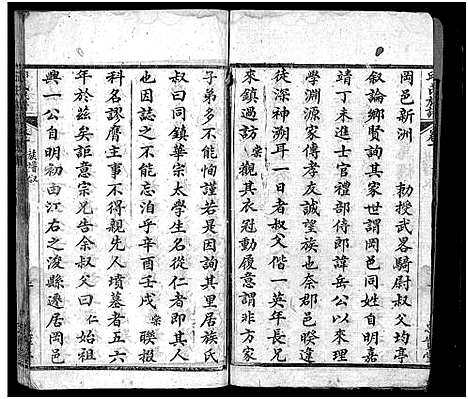 岡邑新洲 勅授武畧騎尉叔父均亭
叙論鄉賢詢其家世謂岡邑同姓自明嘉
靖丁未進士官禮部侍郎諱岳公以來理
學淵源家傳孝友誠望族也奈郡邑暌違
徒深神溯耳一日者叔父偕一英年長兄
來鎮過訪 崇 觀其衣冠動履意謂非方家
子弟多不能恂謹若是因詢其里居族氏
叔曰同鎮華宗太學生名從仁者即其人
也因誌之不忘迨至辛酉壬戌 崇 聯報
科名謬膺主事不得親先人墳墓者五六
年於茲矣詎意宗兄告余叔父曰 仁 始祖
興一公自明初由江右之浚縣遷居岡邑
族譜叙